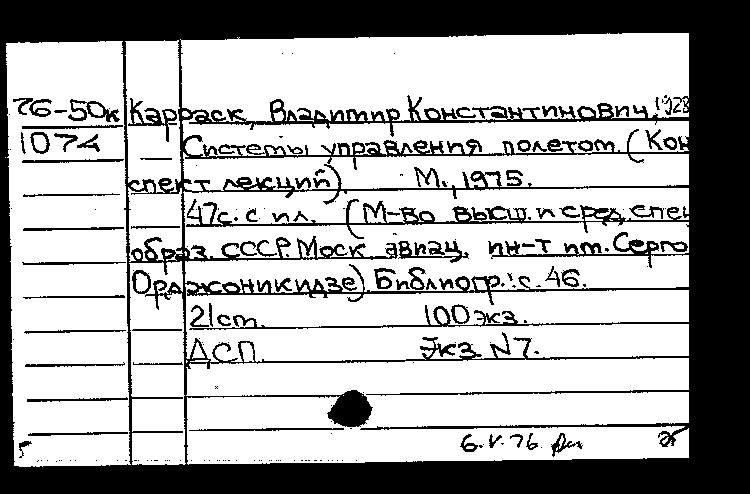 76-50к Карраск, Владимир Константинович, 1928
1074 Системы управления полетом. (Кон
спект лекций). М., 1975.
47с. с ил. (М-во высш. и сред. спец
образ. СССР. Моск авиац. ин-т им. Серго
Орджоникидзе). Библиогр.: с. 46.
21см. 100экз.
ДСП. Экз. N7.
6.V.76.